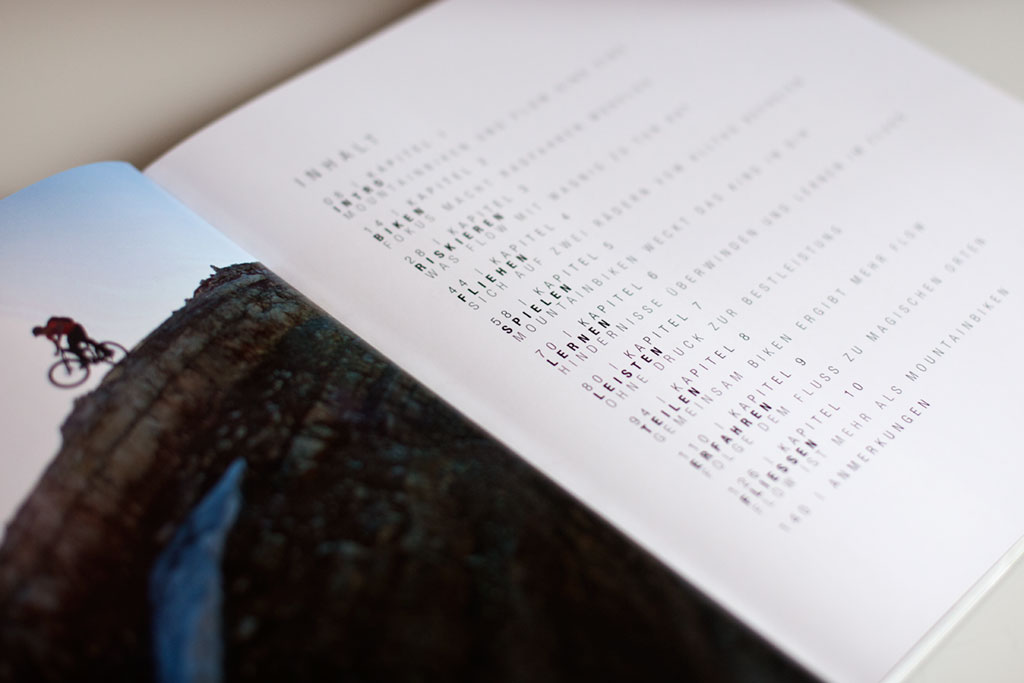 INHALT
08 | KAPITEL 1
INTRO
MOUNTAINBIKEN UND FLOW
14 | KAPITEL 2
BIKEN
FOKUS MACHT RADFAHREN
28 | KAPITEL 3
RISKIEREN
WAS FLOW MIT WAGNIS ZU TUN HAT
44 | KAPITEL 4
FLIEHEN
SICH AUF ZWEI RÄDERN VOM ALLTAG
58 | KAPITEL 5
SPIELEN
MOUNTAINBIKEN WECKT DAS KIND IN DIR
70 | KAPITEL 6
LERNEN
HINDERNISSE ÜBERWINDEN UND LERNEN IM FLUSS
80 | KAPITEL 7
LEISTEN
OHNE DRUCK ZUR BESTLEISTUNG
94 | KAPITEL 8
TEILEN
GEMEINSAM BIKEN ERGIBT MEHR FLOW
110 | KAPITEL 9
ERFAHREN
FOLGE DEM FLUSS ZU MAGISCHEN ORTEN
126 | KAPITEL 10
FLIESSEN
FLOW IST MEHR ALS MOUNTAINBIKEN
140 | ANMERKUNGEN